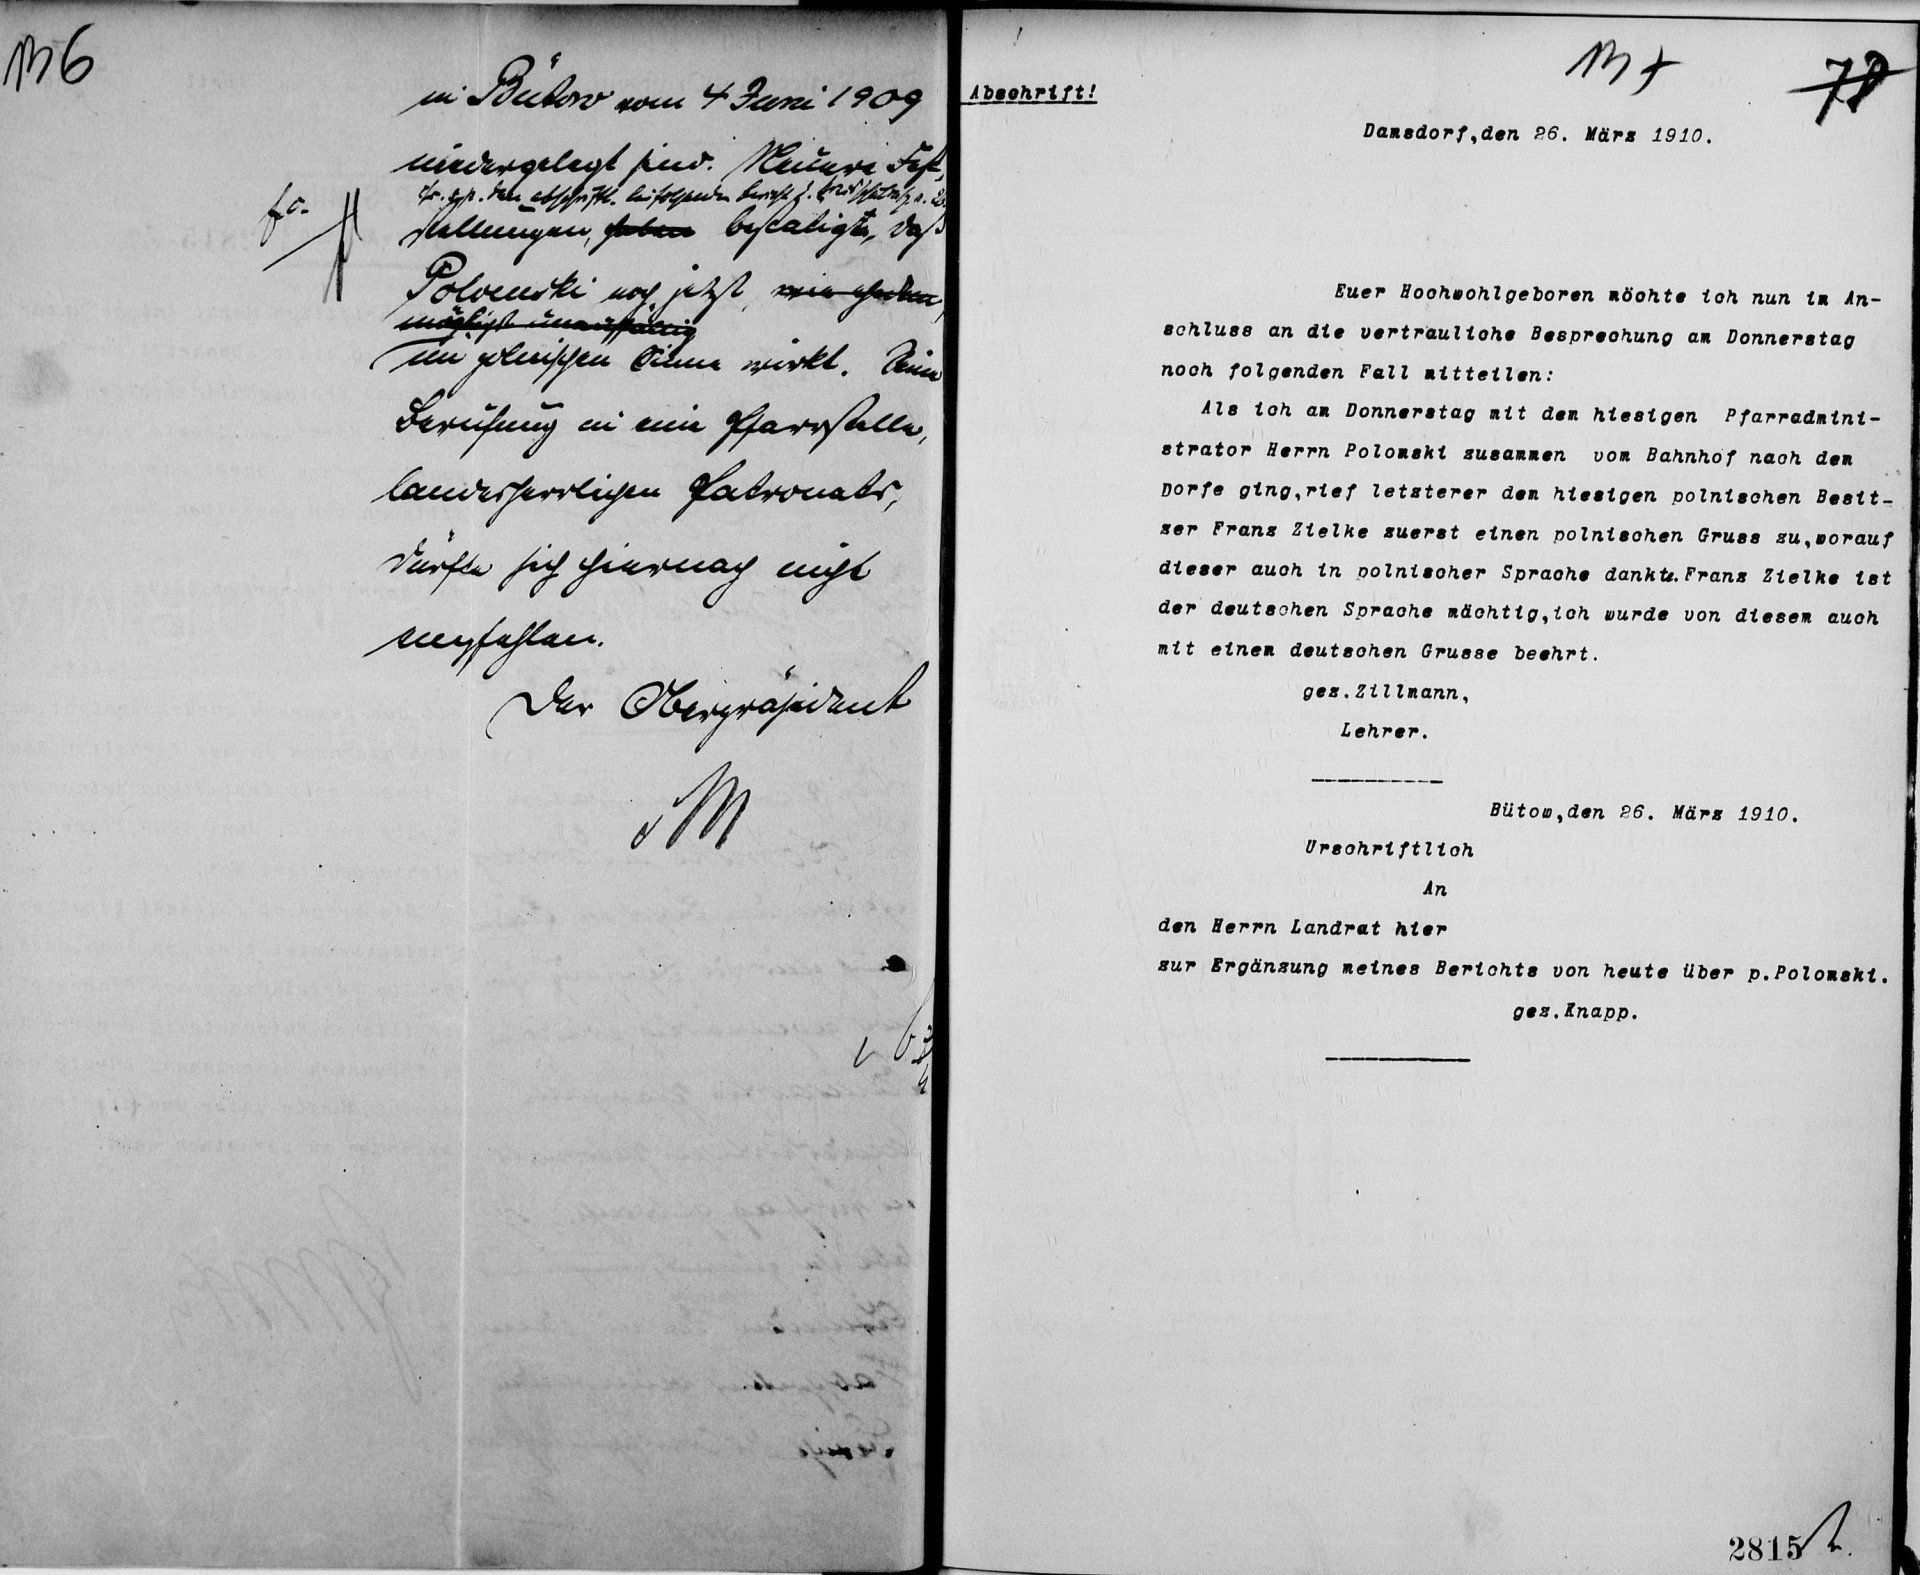 136
in Bütow vom 4 Juni 1909
niedergelegt sind. Neuere Fest-
stellungen, haben bestätigte, daß
Polomski noch jetzt, wie ehedem,
möglichst unauffällig
im polnischen Sinne wirkt. Seine
Berufung in eine Pfarrstelle,
landesherrlichen Patronats,
dürfte sich hiernach nicht
empfehlen.
Der Oberpräsident
Abschrift!
78
Damsdorf,den 26. März 1910.
Euer Hochwohlgeboren möchte ich nun im An-
schluss an die vertrauliche Besprechung am Donnerstag
noch folgenden Fall mitteilen:
Als ich am Donnerstag mit dem hiesigen Pfarradmini-
strator Herrn Polomski zusammen vom Bahnhof nach dem
Dorfe ging,rief letzterer dem hiesigen polnischen Besit-
zer Franz Zielke zuerst einen polnischen Gruss zu,worauf
dieser auch in polnischer Sprache dankte.Franz Zielke ist
der deutschen Sprache mächtig,ich wurde von diesem auch
mit einem deutschen Grusse beehrt.
gez.Zillmann,
Lehrer.
Bütow,den 26. März 1910.
Urschriftlich
An
den Herrn Landrat hier
zur Ergänzung meines Berichts von heute über p.Polomski.
gez.Knapp.
2815